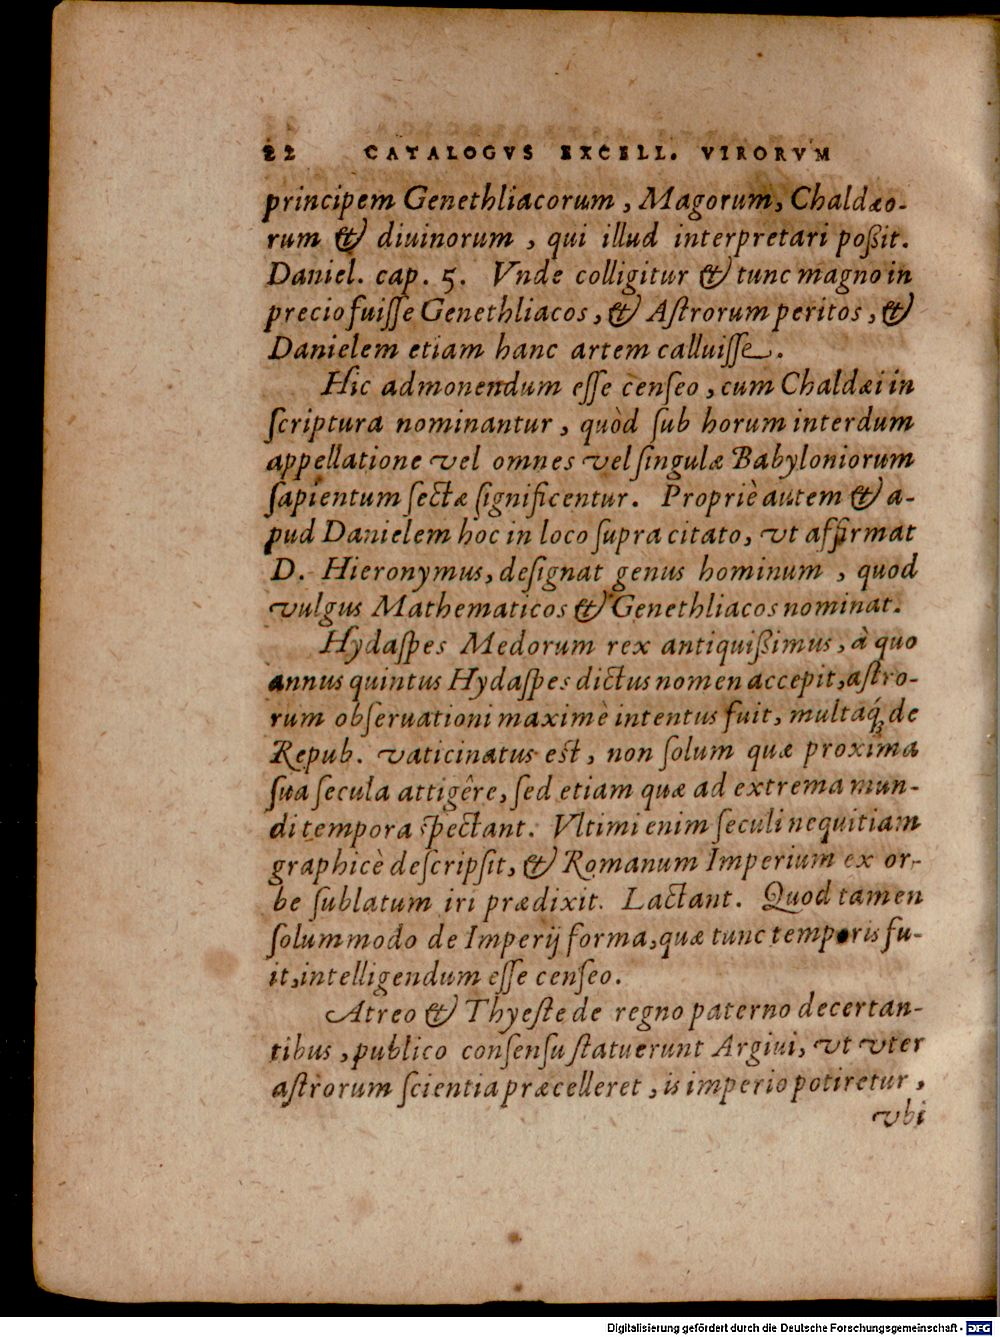 22 CATALOGVS EXCELL. VIRORVM
principem Genethliacorum, Magorum, Chaldæo-
rum & diuinorum, qui illud interpretari poßit.
Daniel. cap. 5. Vnde colligitur & tunc magno in
precio fuiſſe Genethliacos, & Aſtrorum peritos, &
Danielem etiam hanc artem calluiſſe.
Hic admonendum eſſe cenſeo, cum Chaldæi in
ſcriptura nominantur, quòd ſub horum interdum
appellatione vel omnes vel ſingulæ Babyloniorum
ſapientum ſectæ ſignificentur. Propriè autem & a-
pud Danielem hoc in loco ſupra citato, vt affirmat
D. Hieronymus, deſignat genus hominum, quod
vulgus Mathematicos & Genethliacos nominat.
Hydaſpes Medorum rex antiquißimus, à quo
annus quintus Hydaſpes dictus nomen accepit, aſtro-
rum obſeruationi maximè intentus fuit, multaq́; de
Repub. vaticinatus est, non ſolum quæ proxima
ſua ſecula attigêre, ſed etiam quæ ad extrema mun-
di tempora ſpectant. Vltimi enim ſeculi nequitiam
graphicè deſcripſit, & Romanum Imperium ex or-
be ſublatum iri prædixit. Lactant. Quod tamen
ſolummodo de Imperij forma, quæ tunc temporis fu-
it, intelligendum eſſe cenſeo.
Atreo & Thyeſte de regno paterno decertan-
tibus, publico conſenſu ſtatuerunt Argiui, vt vter
aſtrorum ſcientia præcelleret, is imperio potiretur,
vbi
Digitalisierung gefördert durch die Deutsche Forschungsgemeinschaft - DFG